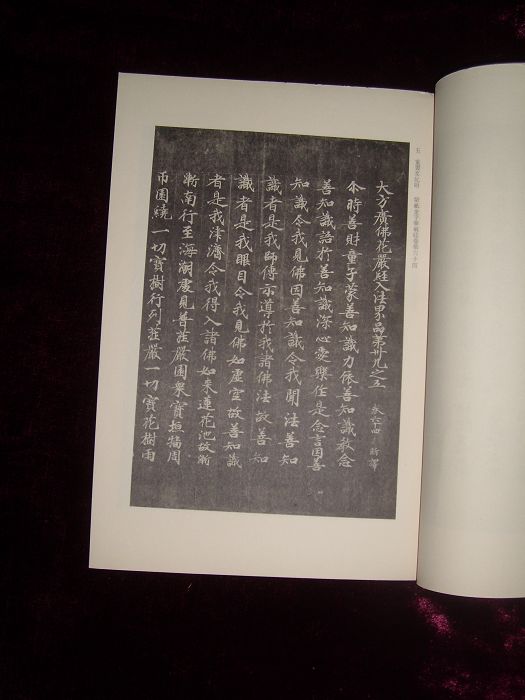 紫紙金字華嚴経巻第六十四
大方廣佛花嚴經入法界品第卅九之五 卷六十四 新譯
尒時善財童子蒙善知識力依善知識教念
善知識語於善知識深心愛樂作是念言因善
知識令我見佛因善知識令我聞法善知
識者是我師傅示導於我諸佛法故善知
識者是我眼目令我見佛如虛空故善知識
者是我津濟令我得入諸佛如来蓮花池故漸
漸南行至海潮處見普莊嚴園衆寶垣牆周
帀圍繞一切寶樹行列莊嚴一切寶花樹雨